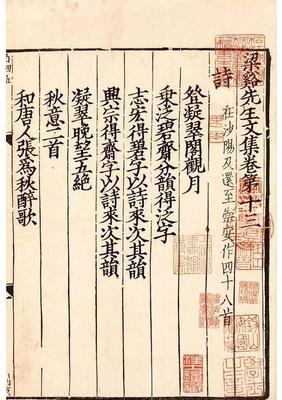 梁谿先生文集卷第十三
詩
在沙陽及還至崇安作四十八首
登凝翠閣觀月
乗泛碧齋分韻得泛字
志宏得碧字以詩來次其韻
興宗得齋字以詩來次其韻
凝翠晚望五絶
秋意二首
和唐人張為秋醉歌